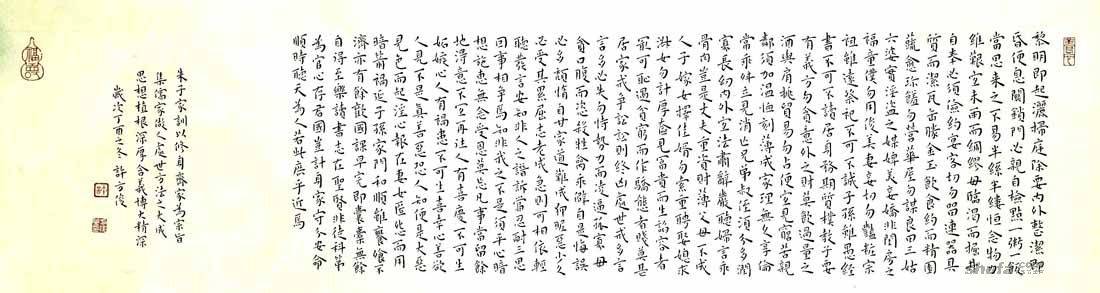 黎明即起灑掃庭除要內外整潔即
昏便息關鎖門必親自檢點一粥一飯
當思來之不易半絲半縷恒念物力
維艱宜未雨而綢繆毋臨渴而掘井
自奉必須儉約宴客切勿留連器具
質而潔瓦缶勝金玉飲食約而精園
蔬愈珍饈勿營華屋勿謀良田三姑
六婆實淫盜之媒婢美妾嬌非閨房之
福童僕勿用俊美妻妾切勿艷粧宗
祖雖遠祭祀不可不誠子孫雖愚經
書不可不讀居身務期質樸教子要
有義方勿貪意外之財莫飲過量之
酒與肩挑貿易勿占便宜見窮苦親
鄰須加溫恤刻薄成家理無久享倫
常乖舛立見消亡兄弟叔侄須分多潤
寡長幼內外宜法肅辭嚴聽婦言乖
骨肉豈是丈夫重資財薄父母不成
人子嫁女擇佳婿勿索重聘娶媳求
淑女勿計厚奩見富貴而生諂容者
最可恥遇貧窮而作驕態者賤莫甚
居家戒爭訟訟則終凶處世戒多言
言多必失勿恃勢力而凌逼孤寡毋
貪口腹而恣殺牲禽乖僻自是悔誤
必多頹惰自甘家道難成狎暱惡少久
必受其累屈志老成急則可相依輕
聽發言安知非人之譖訴當忍耐三思
因事相爭焉知非我之不是須平心暗
想施惠無念受恩莫忘凡事當留餘
地得意不宜再往人有喜慶不可生
妒嫉心人有禍患不可生喜幸心善欲
人見不是真善惡恐人知便是大惡
見色而起淫心報在妻女匿怨而用
暗箭禍延子孫家門和順雖饔飧不
濟亦有餘歡國課早完即囊橐無餘
自得至樂讀書志在聖賢非徒科第
為官心存君國豈計身家守分安命
順時聽天為人若此庶乎近焉
朱子家訓以修身齊家為宗旨
集儒家做人處世方法之大成
思想植根深厚含義博大精深
歲次丁酉之冬許方俊